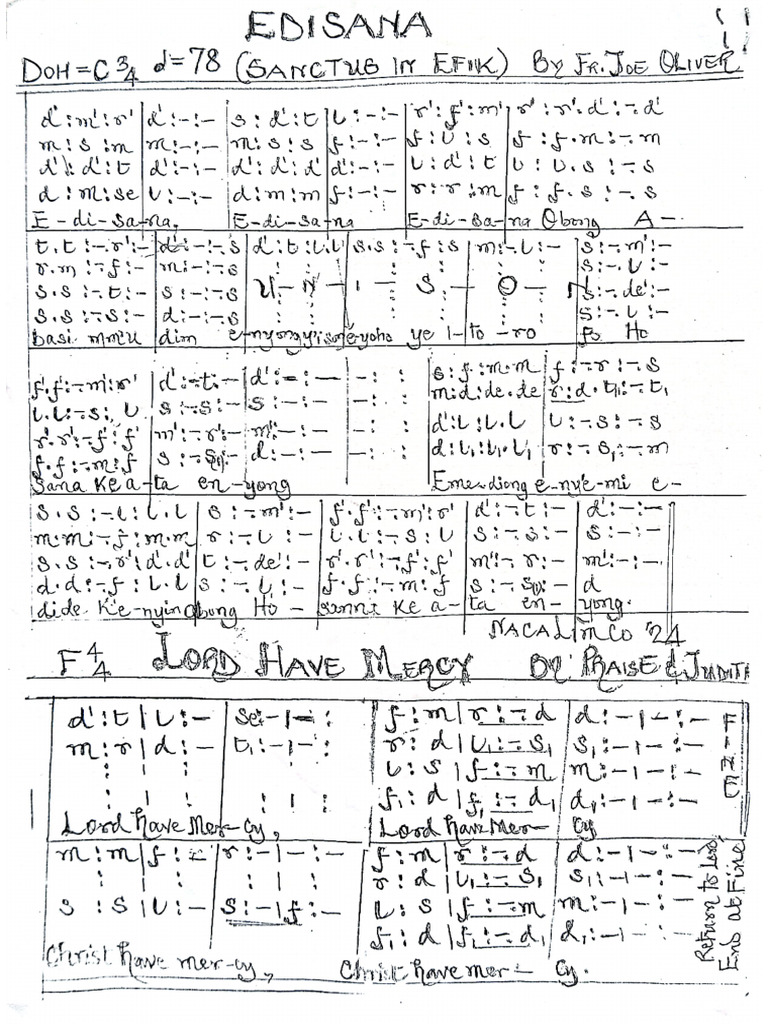 EDISANA
DOH = C 3/4 d = 78 (SANCTUS IN EFIK) BY FR. JOE OLIVER
d' : m' : r' | d' : - : - | s : d' : t | l : - : - | r' : f' : m' | r' : r'. d' : -. d'
m : s : m | m : - : - | m : s : s | f : - : - | f : l : s | f : f. m : -. m
d' : d' : t | d' : - : - | d' : d' : d' | d' : - : - | l : d' : t | l : l. s : -. s
d : m : se | l : - : - | d : m : m | f : - : - | r : r : m | f : f. s : -. s
E - di - sa - na, E - di - sa - na E - di - sa - na Obong A -
t. t : -. r' : - | d' : - : -. s | d' : t : l. l | s. s : -. f : s | m : - l : - | s : -. m' : -
r. m : -. f : - | m : - : -. s | s : -. l : -
s. s : -. t : - | s : - : -. s | U - N - I - S - O - N | s : -. de' : -
s. s : -. s : - | d : - : -. s | s : -. l : -
basi mme dim e-nyong ye l - to - ro fo Ho
f'. f' : -. m' : r' | d' : -. t : - | d' : - : - | - : : | s : f : m. m | f : -. r : -. s
l. l : -. s : l | s : -. s : - | s : - : - | - : : | m : d : de. de | r : d. t₁ : -. t₁
r'. r' : -. f' : f' | m' : -. r' : - | m' : - : - | - : : | d' : l : l. l | l : -. s : -. s
f. f : -. m : f | s : -. s₁ : - | d : - : - | - : : | d : l₁ : l₁. l₁ | r : -. s₁ : -. m
Sana Ke a-ta en-yong Eme-diong e-nye-mi e-
s. s : -. l : l. l | s : -. m' : - | f'. f' : -. m' : r' | d' : -. t : - | d' : - : -
m. m : -. f : m. m | r : -. l : - | l. l : -. s : l | s : -. s : - | s : - : -
s. s : -. r' : d'. d' | t : -. de' : - | r'. r' : -. f' : f' | m' : -. r : - | m' : - : -
d. d : -. f : l. l | s : -. l : - | f. f : -. m : f | s : -. s₁ : - | d
dide Ke-nyin Obong Ho - sanna Ke a - ta en - yong.
NACALIMCO '24
F 4/4 LORD HAVE MERCY BY PRAISE & JUDITH
d' : t | l : - | se : - | - : | f : m | r : -. d | d : - | - : -
m : r | d : - | t₁ : - | - : | r : d | l₁ : -. s₁ | s₁ : - | - : -
: | : | : | : | l : s | f : -. m | m : - | - : -
: | : | : | : | f₁ : d | f₁ : -. d₁ | d₁ : - | - : -
Lord have Mer-cy, Lord have Mer- cy
m : m | f : - | r : - | - : - | f : m | r : -. d | d : - | - : -
: | : | : | : | r : d | l₁ : -. s₁ | s₁ : - | - : -
s : s | l : - | s : - | f : - | l : s | f : -. m | m : - | - : -
f₁ : d | f₁ : -. d₁ | d₁ : - | - : -
Christ have mer-cy, Christ have mer - cy.
Return to Lord,
End at Fine